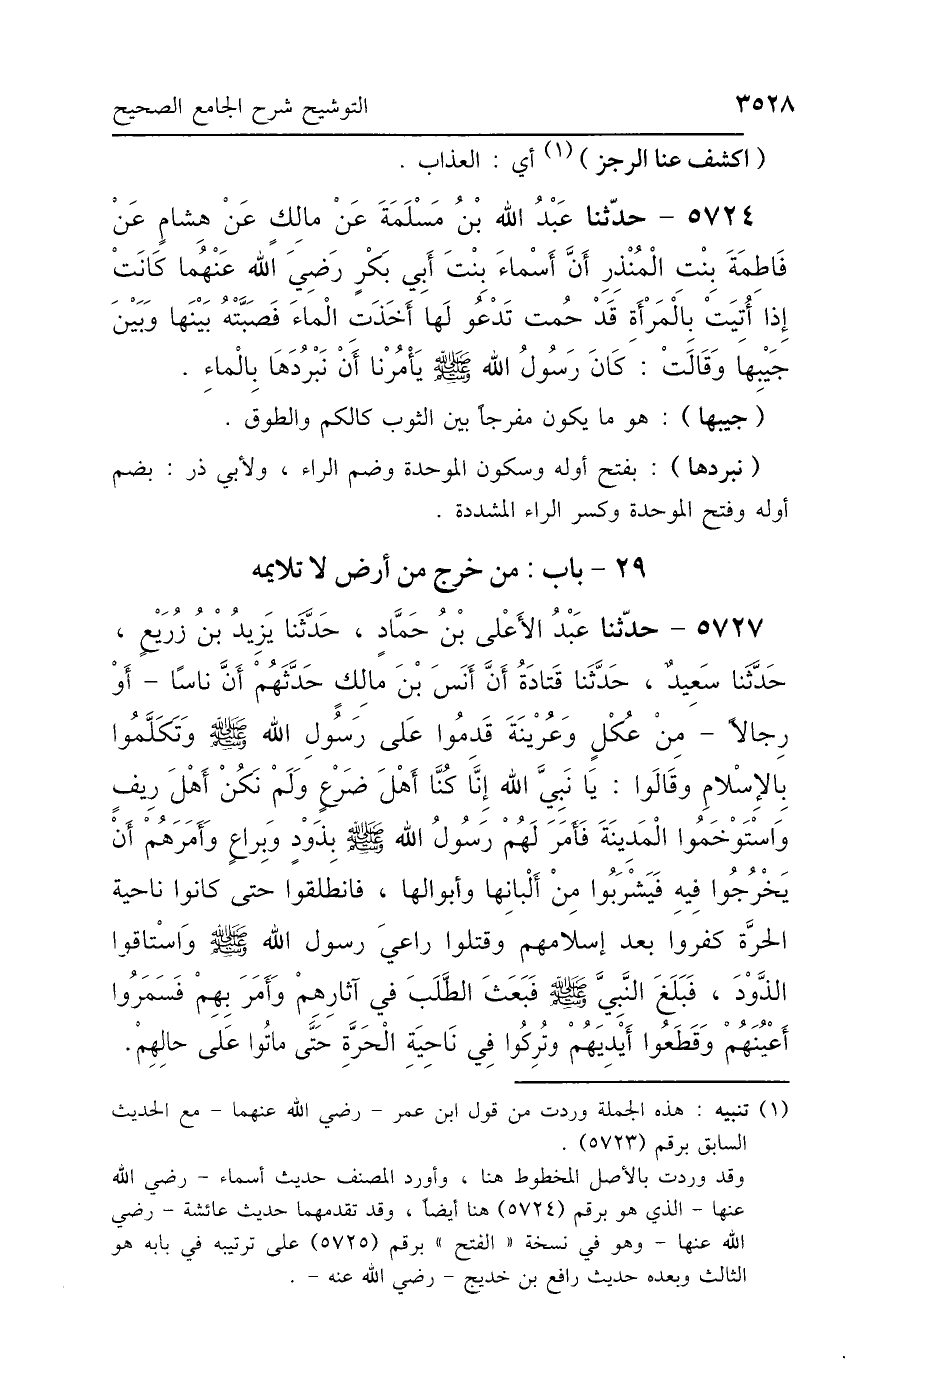 ٣٥٢٨ التوشيح شرح الجامع الصحيح
( اكشف عنا الرجز )(١) أي : العذاب .
٥٧٢٤ - حدّثنا عَبْدُ الله بْنُ مَسْلَمَةَ عَنْ مالِكٍ عَنْ هِشامٍ عَنْ
فَاطِمَةَ بِنْتِ الْمُنْذِرِ أَنَّ أَسْماءَ بِنْتَ أَبِي بَكْرٍ رَضِيَ الله عَنْهُما كَانَتْ
إِذا أُتِيَتْ بِالْمَرْأَةِ قَدْ حُمت تَدْعُو لَها أَخَذَتِ الْماءَ فَصَبَّتْهُ بَيْنَها وَبَيْنَ
جَيْبِها وَقَالَتْ : كَانَ رَسُولُ الله ﷺ يَأْمُرُنا أَنْ نَبْرُدَهَا بِالْماءِ .
( جيبها ) : هو ما يكون مفرجاً بين الثوب كالكم والطوق .
( نبردها ) : بفتح أوله وسكون الموحدة وضم الراء ، ولأبي ذر : بضم
أوله وفتح الموحدة وكسر الراء المشددة .
٢٩ - باب : من خرج من أرض لا تلايمه
٥٧٢٧ - حدّثنا عَبْدُ الأَعْلى بْنُ حَمَّادٍ ، حَدَّثَنا يَزِيدُ بْنُ زُرَيْعٍ ،
حَدَّثَنا سَعِيدٌ ، حَدَّثَنا قَتادَةُ أَنَّ أَنَسَ بْنَ مالِكٍ حَدَّثَهُمْ أَنَّ ناسًا - أَوْ
رِجالاً - مِنْ عُكْلٍ وَعُرَيْنَةَ قَدِمُوا عَلى رَسُولِ الله ﷺ وَتَكَلَّمُوا
بِالإِسْلامِ وقَالُوا : يَا نَبِيَّ الله إِنَّا كُنَّا أَهْلَ ضَرْعٍ وَلَمْ نَكُنْ أَهْلَ رِيفٍ
وَاسْتَوْخَمُوا الْمَدِينَةَ فَأَمَرَ لَهُمْ رَسُولُ الله ﷺ بِذَوْدٍ وَبِراعٍ وَأَمَرَهُمْ أَنْ
يَخْرُجُوا فِيهِ فَيَشْرَبُوا مِنْ أَلْبانِها وأبوالها ، فانطلقوا حتى كانوا ناحية
الحرَّة كفروا بعد إسلامهم وقتلوا راعيَ رسول الله ﷺ وَاسْتاقوا
الذَّوْدَ ، فَبَلَغَ النَّبِيَّ ﷺ فَبَعَثَ الطَّلَبَ في آثارِهِمْ وَأَمَرَ بِهِمْ فَسَمَرُوا
أَعْيُنَهُمْ وَقَطَعُوا أَيْدِيَهُمْ وتُرِكُوا فِي نَاحِيَةِ الْحَرَّةِ حَتَّى ماتُوا عَلى حالِهِمْ.
(١) تنبيه : هذه الجملة وردت من قول ابن عمر - رضي الله عنهما - مع الحديث
السابق برقم (٥٧٢٣) .
وقد وردت بالأصل المخطوط هنا ، وأورد المصنف حديث أسماء - رضي الله
عنها - الذي هو برقم (٥٧٢٤) هنا أيضاً ، وقد تقدمهما حديث عائشة - رضي
الله عنها - وهو في نسخة « الفتح » برقم (٥٧٢٥) على ترتيبه في بابه هو
الثالث وبعده حديث رافع بن خديج - رضي الله عنه - .